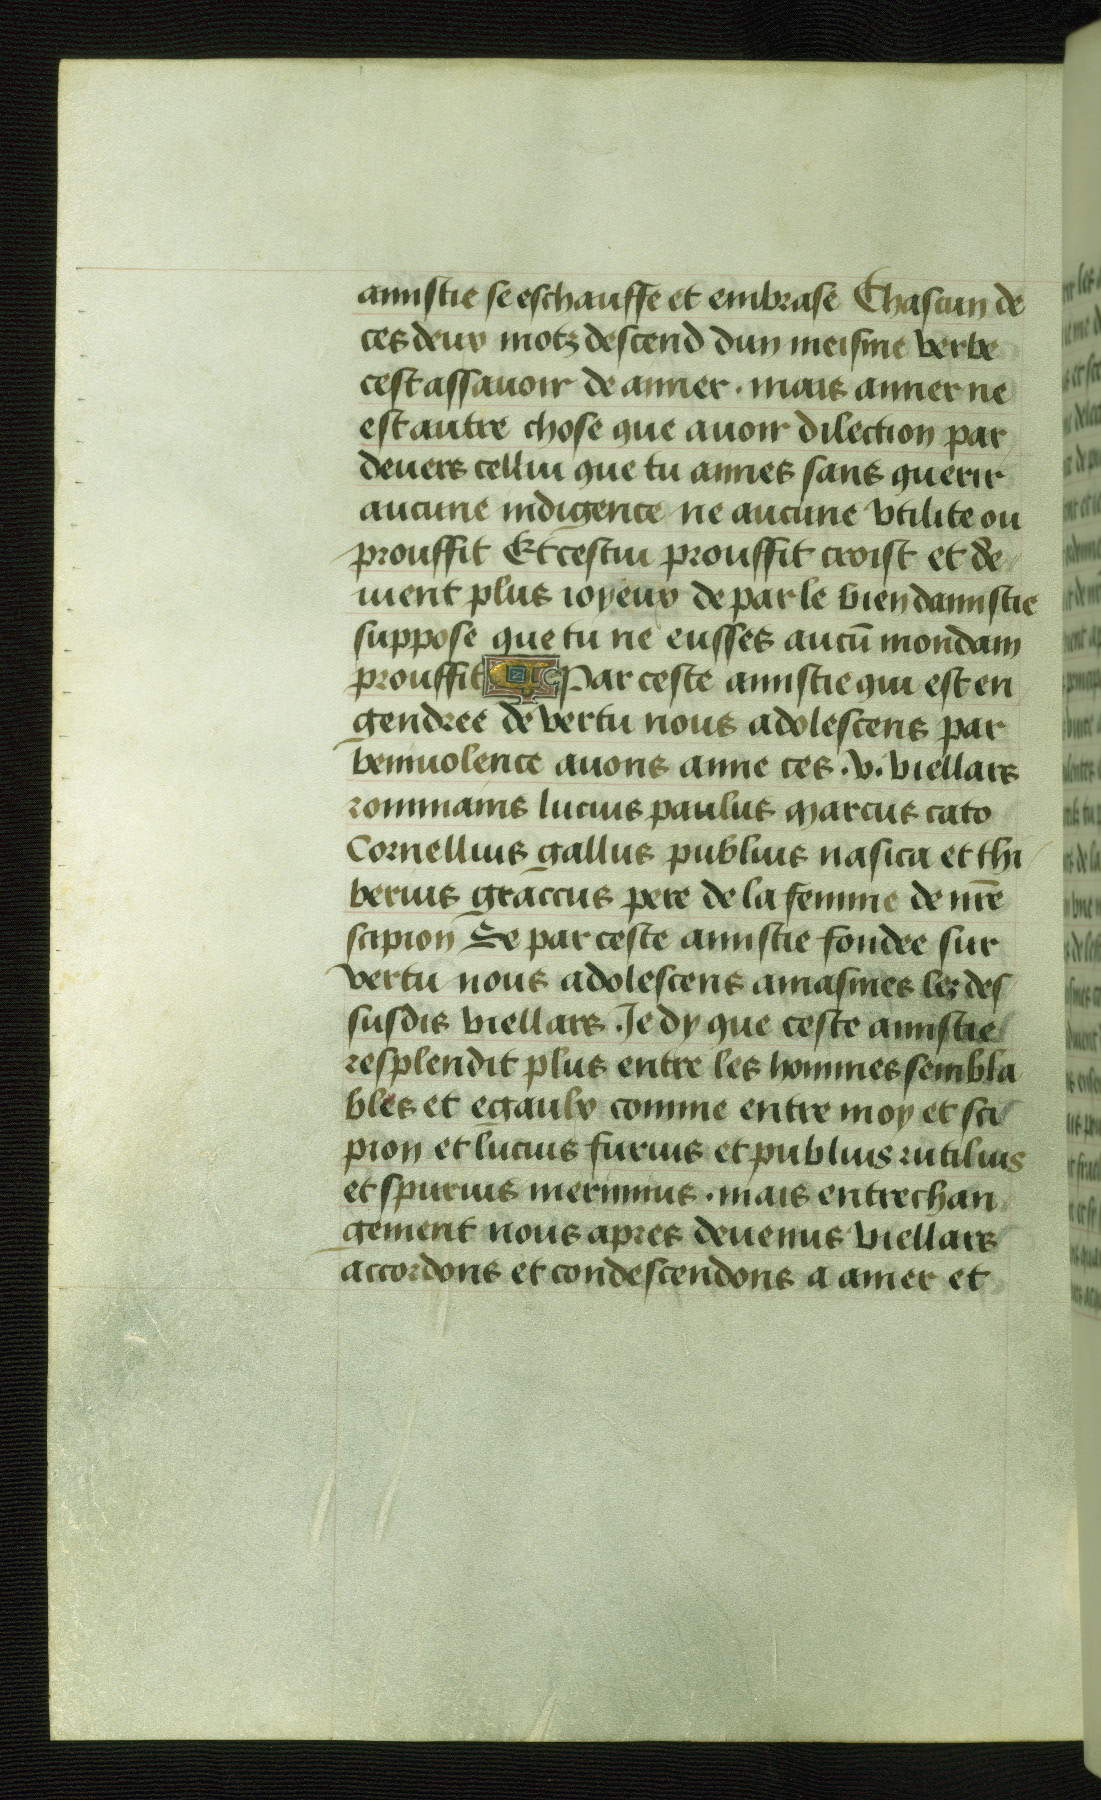 amistie se eschauffe et embrase Chascun de
ces deux motz descend dun meisme verbe
cest assauoir de aimer . mais aimer ne
est autre chose que auoir dilection par
deuers cellui que tu aimes sans querir
aucune indigence ne aucune vtilite ou
prouffit Et cestui prouffit croist et de
uient plus ioyeux de par le bien damistie
suppose que tu ne eusses aucū mondain
prouffit Par ceste amistie qui est en
gendree de vertu nous adolescens par
beniuolence auons aime ces .v. viellars
rommains lucius paulus marcus cato
Cornellius gallus publius nasica et thi
berius graccus pere de la femme de nr̄e
scipion Se par ceste amistie fondee sur
vertu nous adolescens amasmes lez des
susdis viellars . Je dy que ceste amistie
resplendit plus entre les hommes sembla
bles et egaulx comme entre moy et sci
pion et lucius furius et publius rutilius
et spurius mermius . mais entrechan
gement nous apres deuenus viellars
accordons et condescendons a amer et